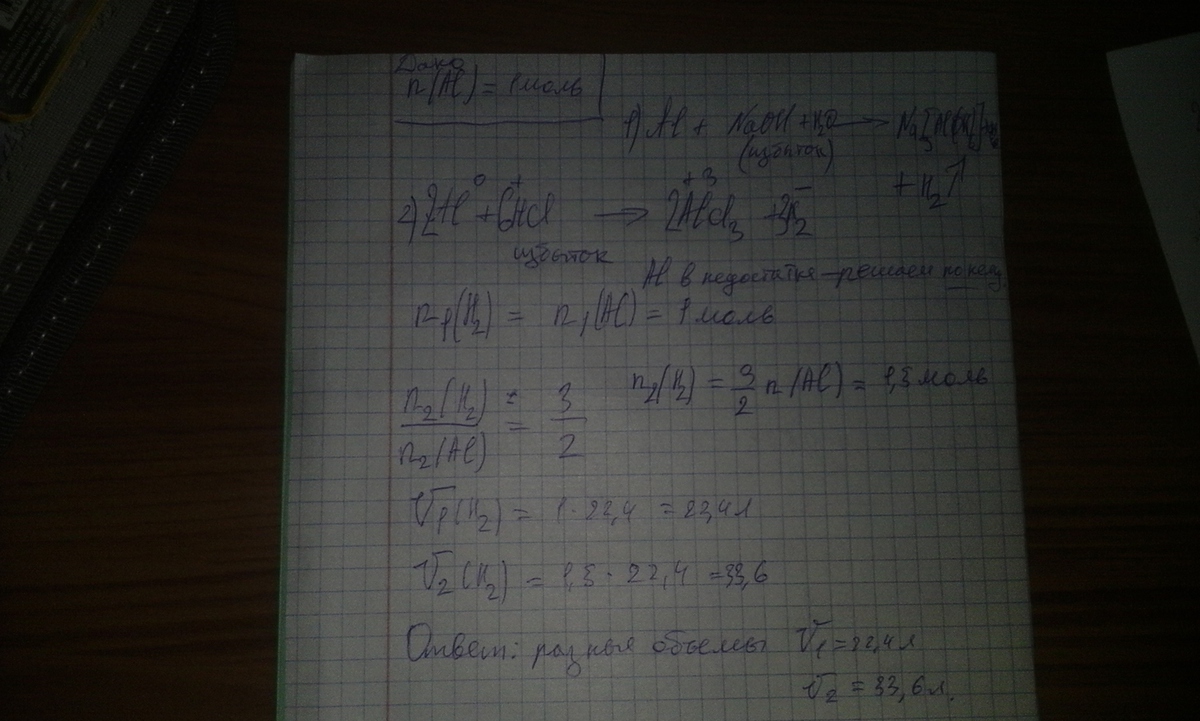 Дано
n(Al) = 1 моль
1) Al + NaOH + H2O → Na3[Al(OH)6]
(избыток)
+ H2↑
0 + +3 -
2) 2Al + 6HCl → 2AlCl3 + 3H2
избыток
Al в недостатке – решаем по нему
n1(H2) = n1(Al) = 1 моль
n2(H2) / n2(Al) = 3 / 2
n2(H2) = 3/2 n(Al) = 1,5 моль
V1(H2) = 1 · 22,4 = 22,4 л
V2(H2) = 1,5 · 22,4 = 33,6
Ответ: разные объемы V1 = 22,4 л
V2 = 33,6 л.